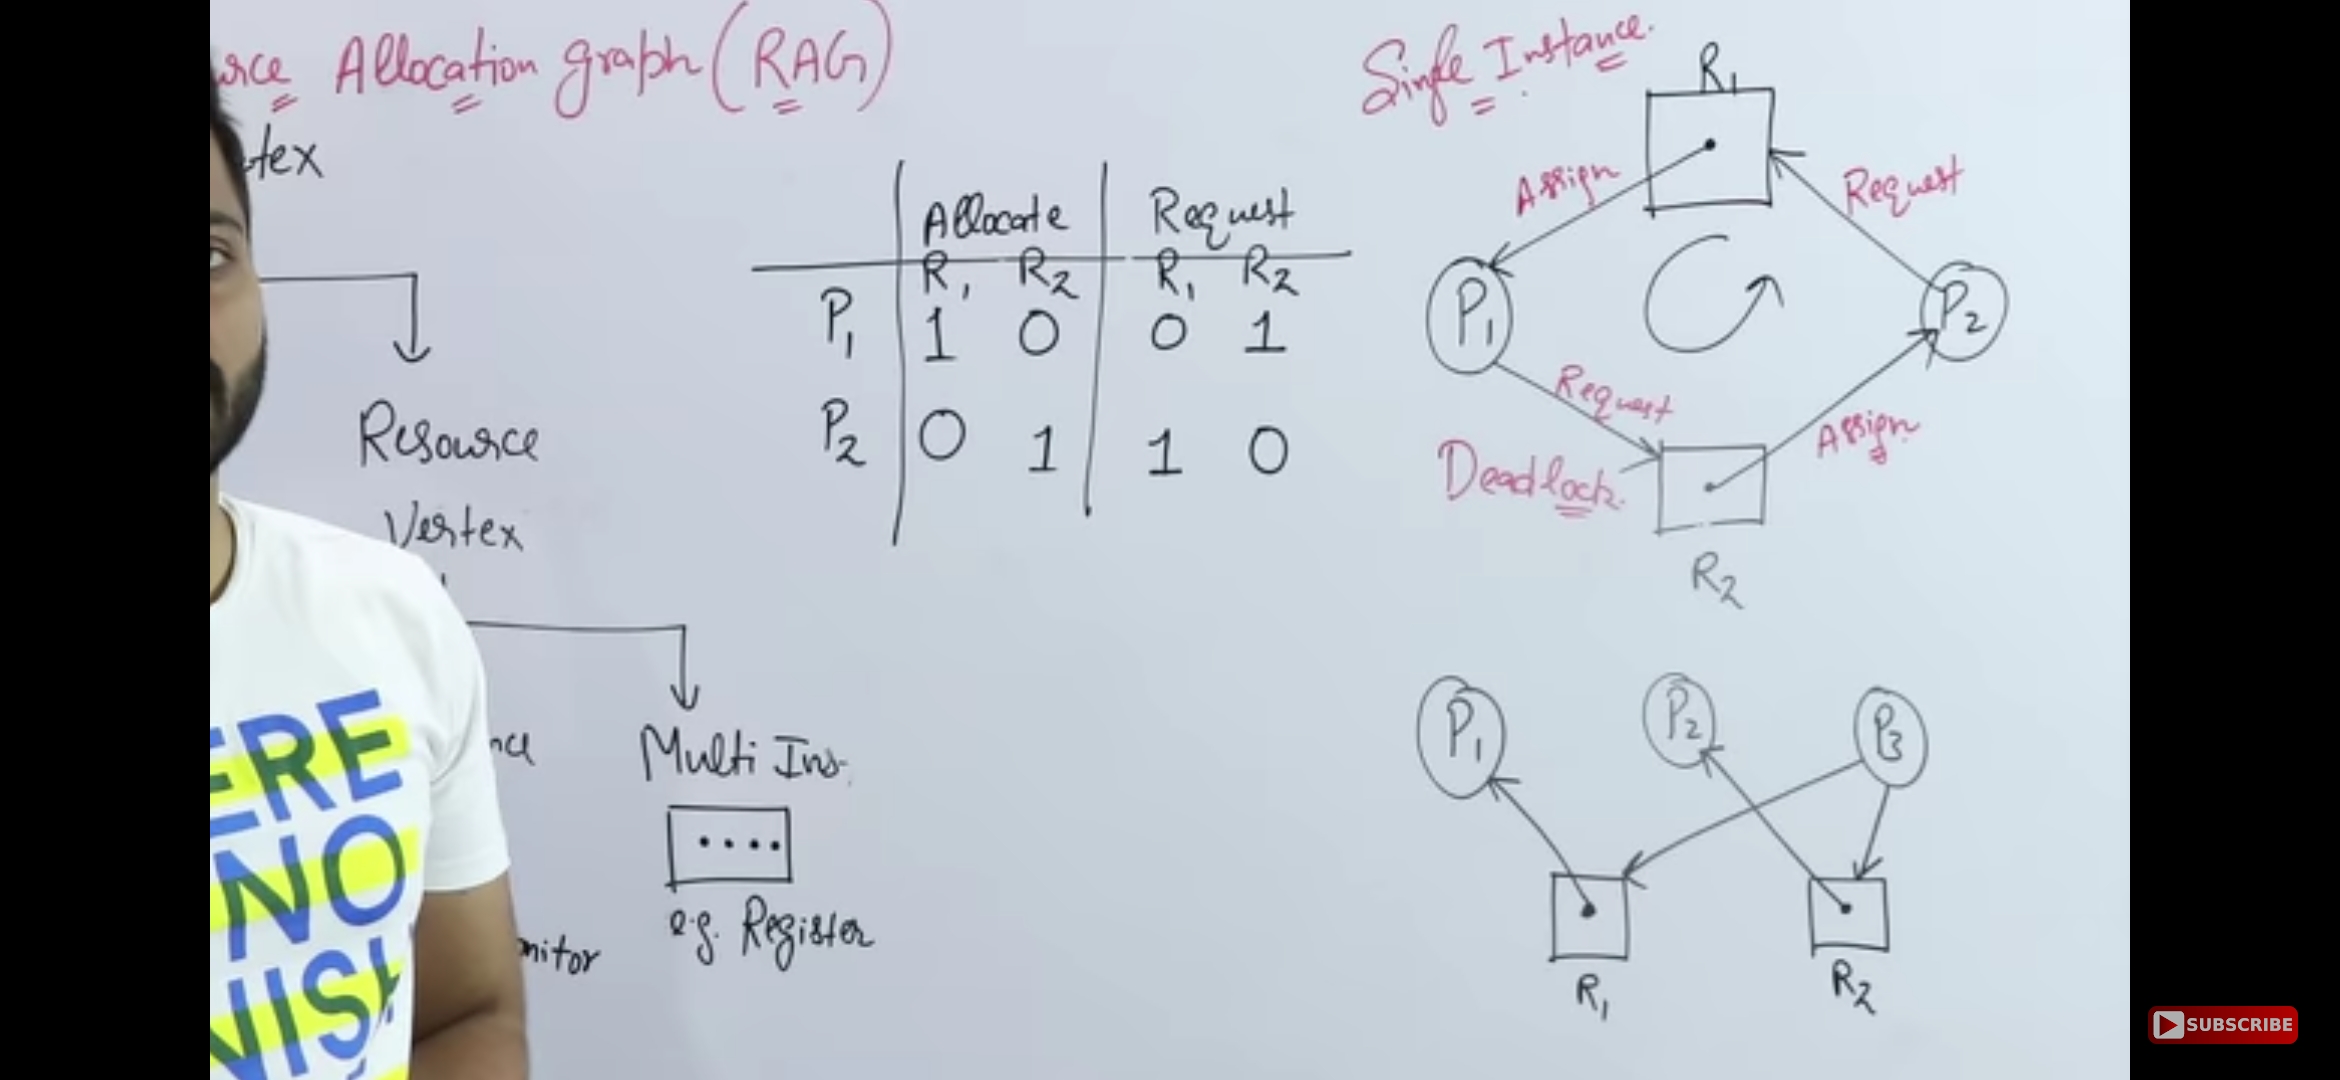 Allocation graph (RAG)
Resource
Vertex
Multi Ins.
e.g. Register
Allocate Request
R1 R2 R1 R2
P1 1 0 0 1
P2 0 1 1 0
Single Instance.
R1
Assign
Request
P1
P2
Request
Assign
Deadlock.
R2
P1 P2 P3
R1 R2
ERE
NO
SUBSCRIBE